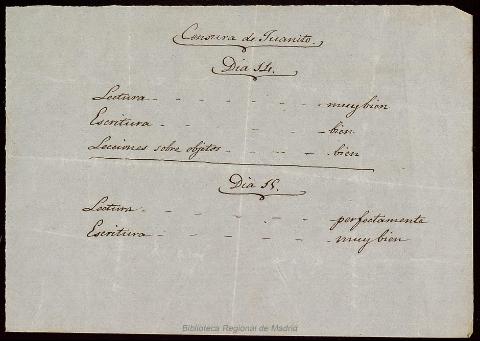 Censura de Juanito.
Dia 14.
Lectura - - - - - - - muy bien
Escritura - - - - - - bien.
Lecciones sobre objetos - - - - bien
Dia 15.
Lectura - - - - - - - perfectamente
Escritura - - - - - - muy bien
Biblioteca Regional de Madrid